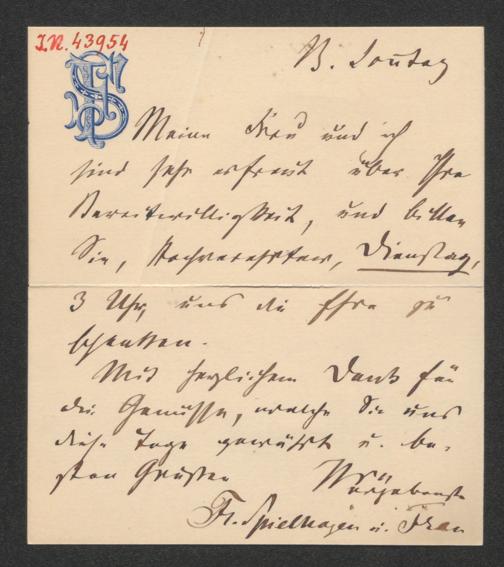 I.N. 43954
B. Sonntag
Meine Frau und ich
sind sehr erfreut über Ihre
Bereitwilligkeit, und bitten
Sie, Hochverehrter, Dienstag,
3 Uhr, uns die Ehre zu
schenken.
Mit herzlichem Dank für
die Genüsse, welche Sie uns
diese Tage gewährt u. be-
sten Grüssen
Ihr ergebenster
Fr. Spielhagen u. Frau